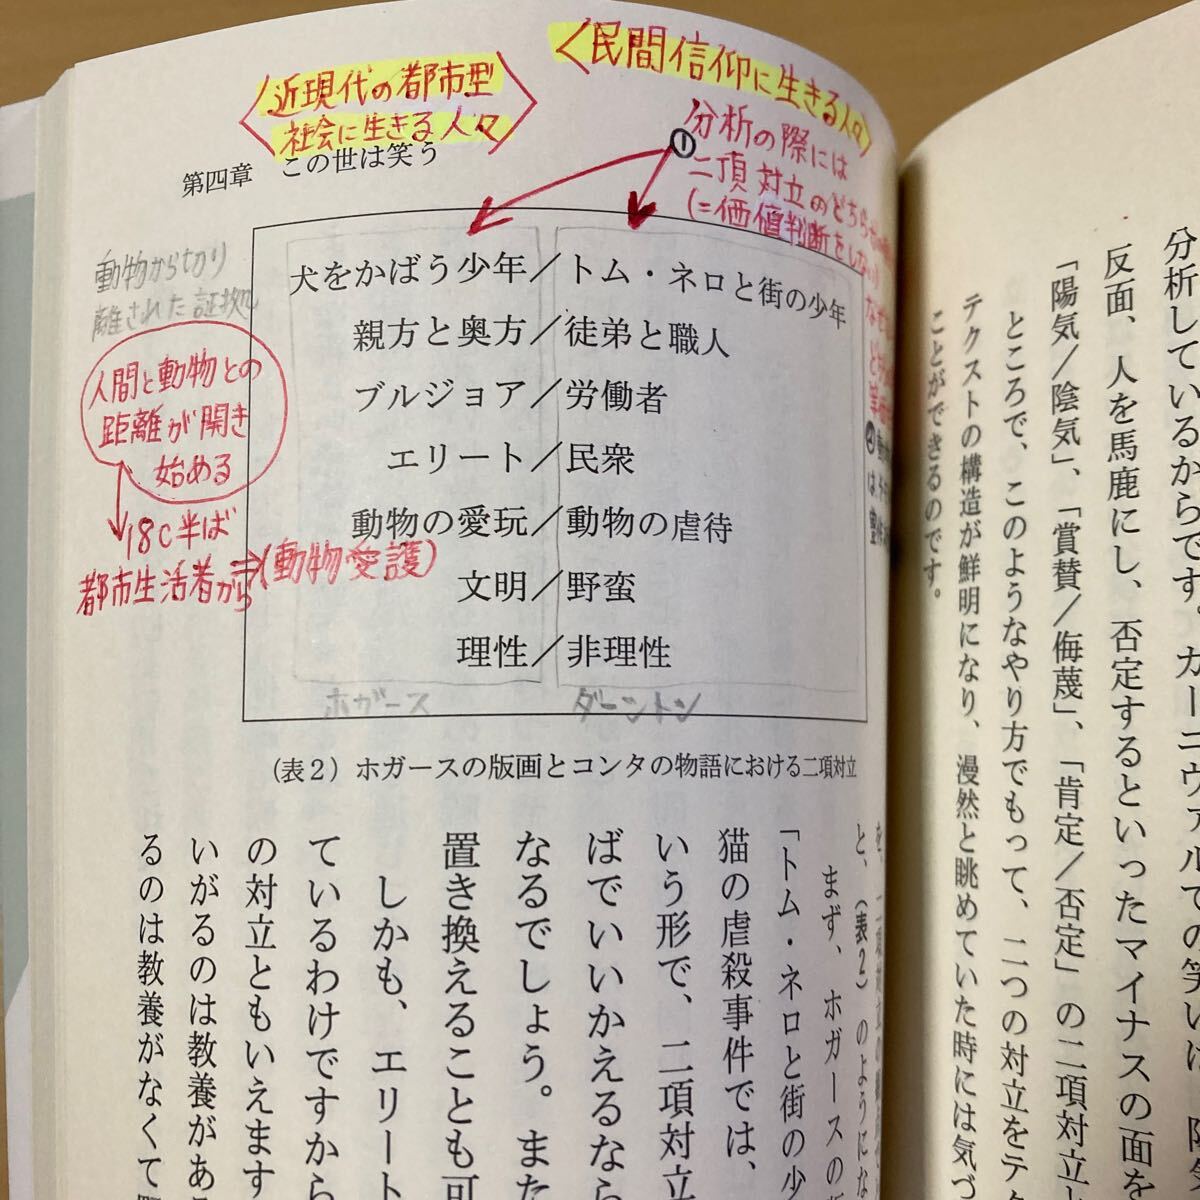 〈民間信仰に生きる人々〉
〈近現代の都市型
社会に生きる人々〉
①分析の際には
二項対立のどちら
(=価値判断をしない)
第四章　この世は笑う
動物から切り
離された証拠
人間と動物との
距離が開き
始める
18C半ば
都市生活者から
⇒(動物愛護)
犬をかばう少年／トム・ネロと街の少年
親方と奥方／徒弟と職人
ブルジョア／労働者
エリート／民衆
動物の愛玩／動物の虐待
文明／野蛮
理性／非理性
ホガース
ダーントン
(表2) ホガースの版画とコンタの物語における二項対立
分析しているからです。カーニヴァルでの笑いは、陽気
反面、人を馬鹿にし、否定するといったマイナスの面を
「陽気／陰気」、「賞賛／侮蔑」、「肯定／否定」の二項対立
ところで、このようなやり方でもって、二つの対立をテク
テクストの構造が鮮明になり、漫然と眺めていた時には気づ
ことができるのです。
と、(表2)のようにな
まず、ホガースの版
「トム・ネロと街の少
猫の虐殺事件では、
いう形で、二項対立
ばでいいかえるなら
なるでしょう。また
置き換えることも可
しかも、エリート
ているわけですから
の対立ともいえます
いがるのは教養があ
るのは教養がなくて